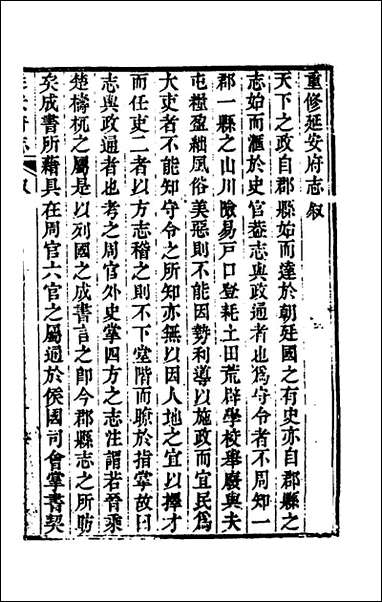 重修延安府志敘
天下之政自郡縣始而達於朝廷國之有史亦自郡縣之
志始而滙於史官葢志與政通者也爲守令者不周知一
郡一縣之山川險易戶口登耗土田荒辟學校舉廢與夫
屯糧盈絀風俗美惡則不能因勢利導以施政而宜民爲
大吏者不能知守令之所知亦無以因人地之宜以擇才
而任吏二者以方志稽之則不下堂階而瞭於指掌故曰
志與政通者也考之周官外史掌四方之志注謂若晉乘
楚檮杌之屬是以列國之成書言之卽今郡縣志之所昉
矣成書所藉具在周官六官之屬通於侯國司會掌書契